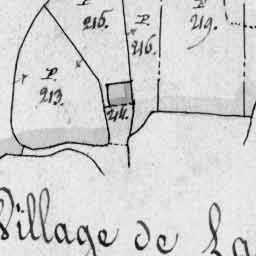 P. 215.
P. 216.
P. 219.
P. 213.
214.
Village de La